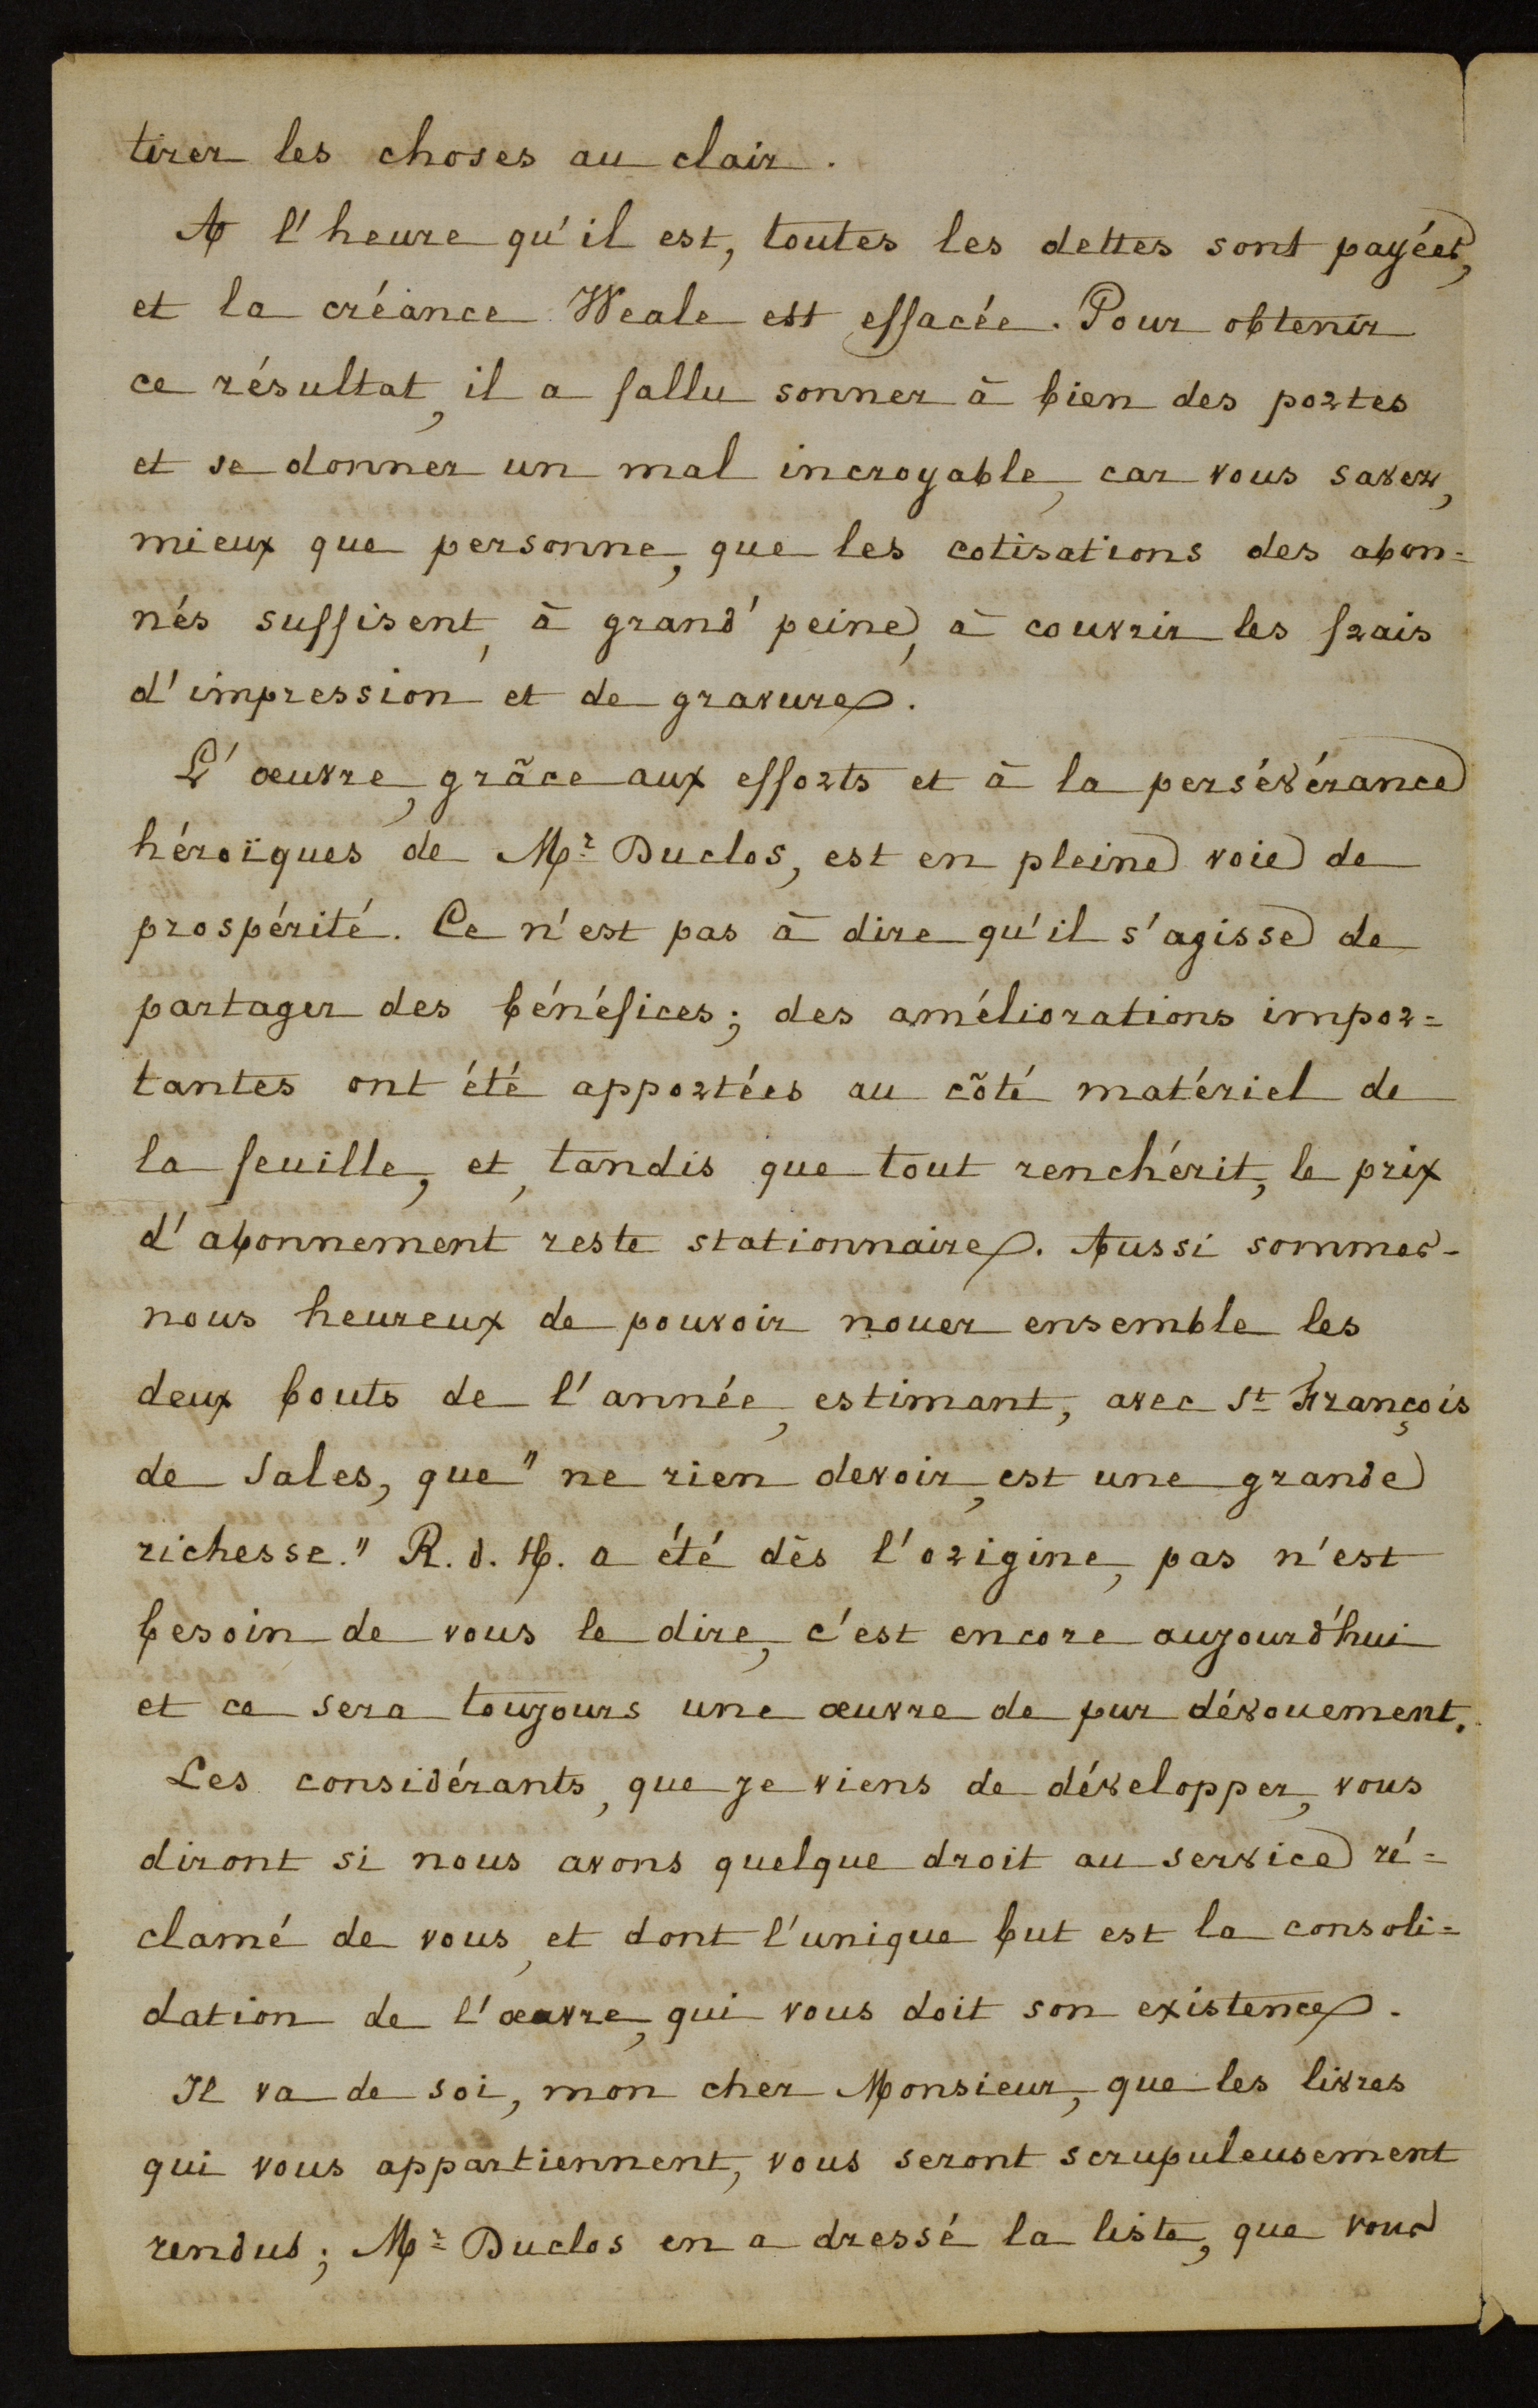 tirer les choses au clair.
A l'heure qu'il est, toutes les dettes sont payées,
et la créance Weale est effacée. Pour obtenir
ce résultat, il a fallu sonner à bien des portes
et se donner un mal incroyable, car vous savez,
mieux que personne, que les cotisations des abon=
nés suffisent, à grand' peine, à couvrir les frais
d'impression et de gravure.
L'œuvre, grâce aux efforts et à la persévérance
héroïques de Mr Duclos, est en pleine voie de
prospérité. Ce n'est pas à dire qu'il s'agisse de
partager des bénéfices; des améliorations impor=
tantes ont été apportées au côté matériel de
la feuille, et, tandis que tout renchérit, le prix
d'abonnement reste stationnaire. Aussi sommes-
nous heureux de pouvoir nouer ensemble les
deux bouts de l'année, estimant, avec St François
de Sales, que "ne rien devoir, est une grande
richesse." R. d. H. a été dès l'origine, pas n'est
besoin de vous le dire, c'est encore aujourd'hui
et ce sera toujours une œuvre de pur dévouement.
Les considérants, que je viens de développer, vous
diront si nous avons quelque droit au service ré=
clamé de vous, et dont l'unique but est la consoli=
dation de l'œuvre, qui vous doit son existence.
Il va de soi, mon cher Monsieur, que les livres
qui vous appartiennent, vous seront scrupuleusement
rendus; Mr Duclos en a dressé la liste, que vous